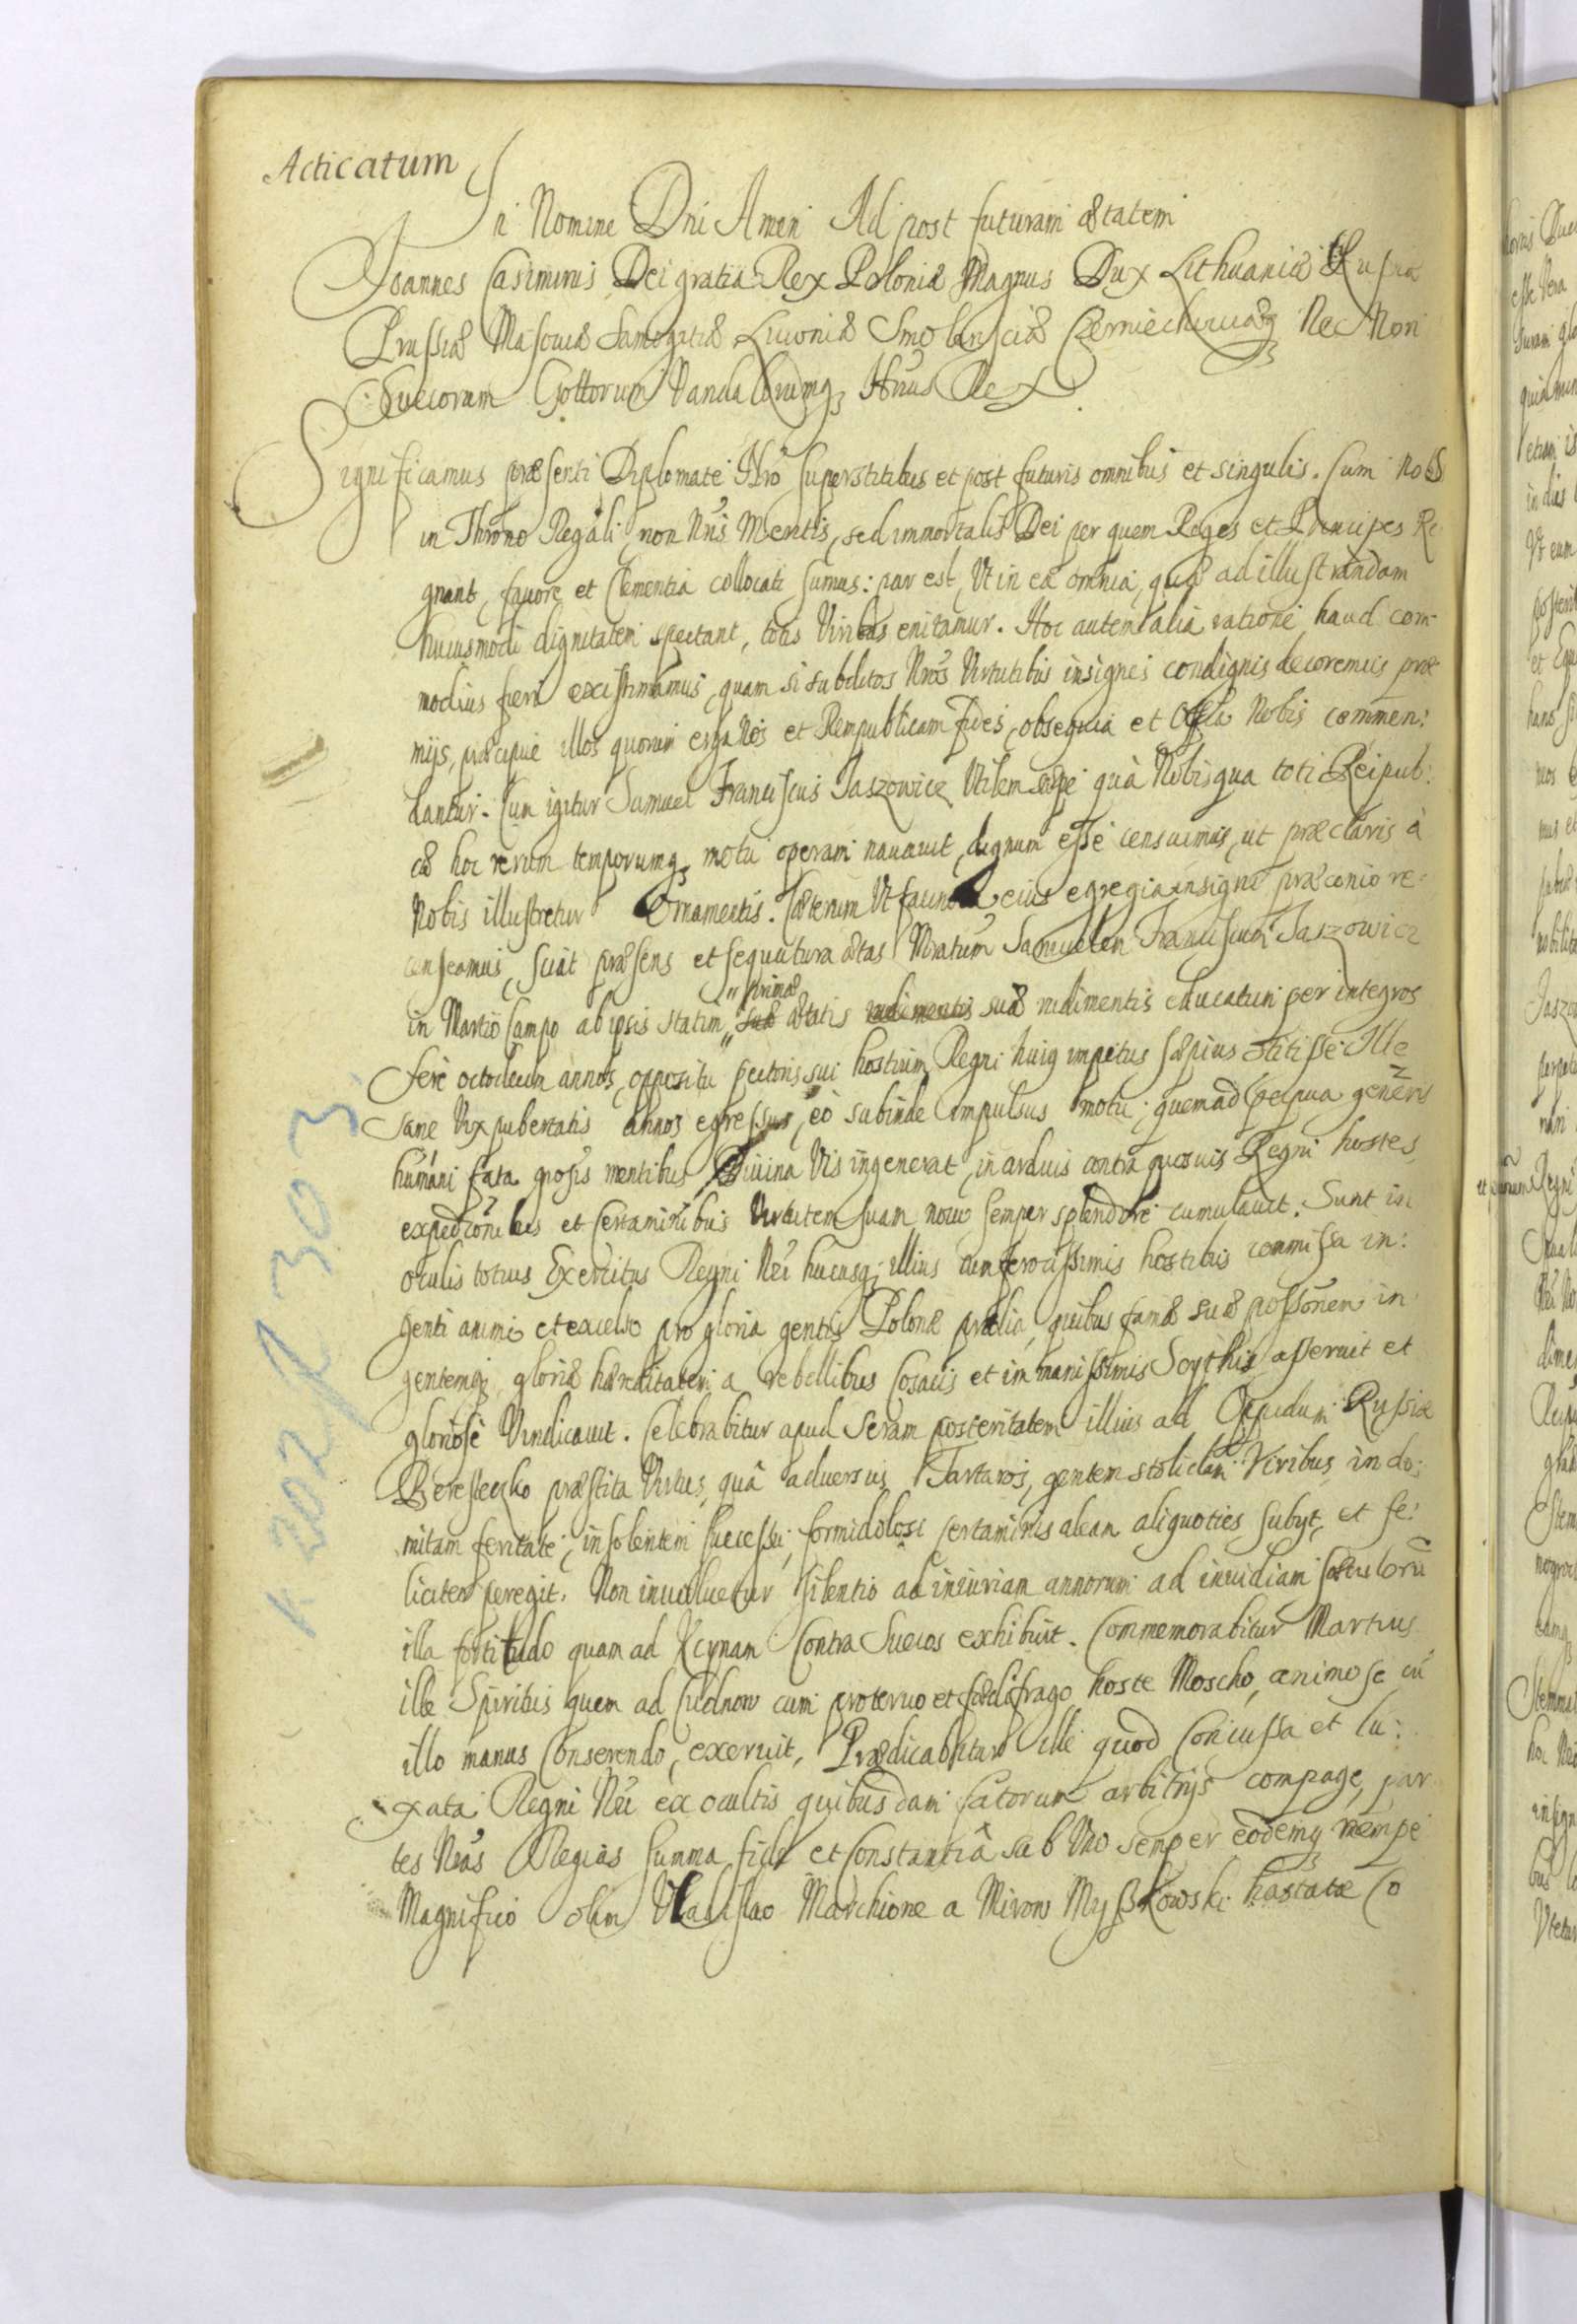 Acticatum
In Nomine Dni Amen Ad post futuram ætatem
Ioannes Casimirus Dei gratia Rex Poloniæ Magnus Dux Lithuaniæ Russiæ
Prussiæ Masoviæ Samogitiæ Livoniæ Smolensciæ Czerniechoviæq Nec Non
Suecorum Gottorum Vandalorumq Hrius Rex
Significamus præsenti Diplomate Nro superstitibus et post futuris omnibus et singulis. Cum nos
in Throno Regali, non Nris Meritis, sed immortalis Dei per quem Reges et Principes Re
gnant, favore et Clementia collocati sumus: par est, Ut in ea omnia, quæ ad illustrandam
huiusmodi dignitatem spectant, totis Viribus enitamur. Hoc autem alia ratione haud com-
modius fieri existimamus, quam si subditos Nros Virtutibus insignes condignis decoremus præ
mijs, præcipue illos quorum erga Nos et Rempublicam fides, obsequia et Offa Nobis commen:
dantur. Cum igitur Samuel Franciscus Jaszowicz Utilem sæpe quà Nobis qua toti Reipub:
cæ hoc rerum temporumq motu operam navavit, dignum esse censuimus, ut præclaris à
Nobis illustretur Ornamentis. Cæterum Ut facinora eius egregia insigni præconio re:
censeamus, sciat præsens et sequutura ætas Nratum Samuelem Franciscum Jaszowicz
in Martio Campo ab ipsis statim primæ ætatis suæ rudimentis educatum per integros
fere octodecim annos, oppositu pectoris sui hostium Regni huiq impetus sæpius stitisse. Ille
sane Vix pubertatis annos egressus, eò subinde impulsus motu, quem ad perpua generis
humani fata grosis mentibus Divina Vis ingenerat, in arduis contra quosvis Regni hostes,
expedonibus et Certaminibus Virtutem suam novo semper splendore cumulavit. Sunt in
oculis totius Exercitus Regni Nri hucusq illius cum ferocissimis hostibus commissa in:
genti animo et excelso pro gloria gentis Polonæ prælia, quibus famæ suæ possonem in
gentemq gloriæ hæreditatem a rebellibus Cosacis et immanissimis Scythis asseruit et
gloriose Vindicavit. Celebrabitur apud seram posteritatem illius ad Oppidum Russiæ
Beresteczko præstita Virtus, quâ adversus Tartaros, gentem stolidam Viribus indo:
mitam feritate, insolentem successu, formidolosi certaminis aleam aliquoties subyt, et fe:
liciter peregit. Non involuetur silentio ad iniuriam annorum ad invidiam sæculorũ
illa fortitudo quam ad Kcynam Contra Suecos exhibuit. Commemorabitur Martius
ille Spiritus quem ad Cudnow cum protervo et fædifrago hoste Moscho, animose cũ
illo manus Conserendo, exeruit. Prædicabitur ille quod Concussa et lu:
xata Regni Nri ex ocultis quibusdam fatorum arbitrijs compage, par
tes Nras Regias summa fide et Constantiâ sub Uno semper eodemq nempe
Magnifico olim Vladislao Marchione a Mirow Myszkowski hastatæ Co
k 202 R 303